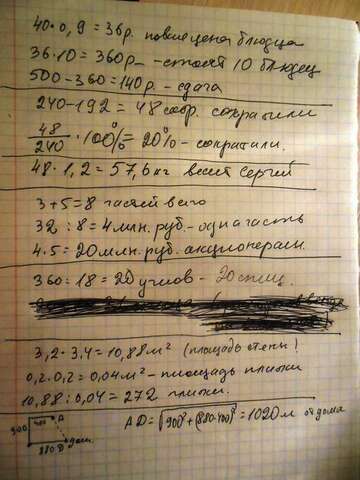 40·0,9=36р. новая цена блюдца
36·10=360р – стоят 10 блюдец
500-360=140р. – сдача
240-192=48 сотр. сократили
48/240 · 100%=20% – сократили.
48·1,2=57,6кг весит Сергей
3+5=8 частей всего
32:8=4 млн. руб. – одна часть
4·5=20 млн. руб. акционерам.
360:18=20 углов – 20 спиц.
3,2·3,4=10,88м² (площадь стены)
0,2·0,2=0,04м² – площадь плитки
10,88:0,04=272 плитки.
400 A
900
880 D дом.
AD=√900²+(880-400)²=1020м от дома